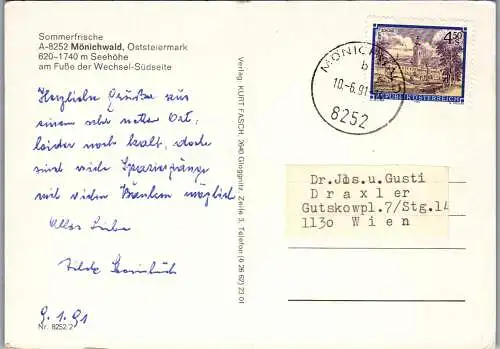 Sommerfrische
A-8252 Mönichwald, Oststeiermark
620-1740 m Seehöhe
am Fuße der Wechsel-Südseite
Herzliche Grüße aus
einem sehr netten Ort,
leider noch kalt, doch
sind viele Spaziergänge
mit vielen Bänken möglich
Alles Liebe
9.1.91
Nr. 8252/2
Verlag: KURT FASCH, 2640 Gloggnitz, Zeile 3, Telefon (0 26 62) 23 01
MÖNICHWALD
b
10.-6.91
8252
4.50
S
REPUBLIK ÖSTERREICH
Dr.Jos.u.Gusti
Draxler
Gutskowpl.7/Stg.14
1130 Wien